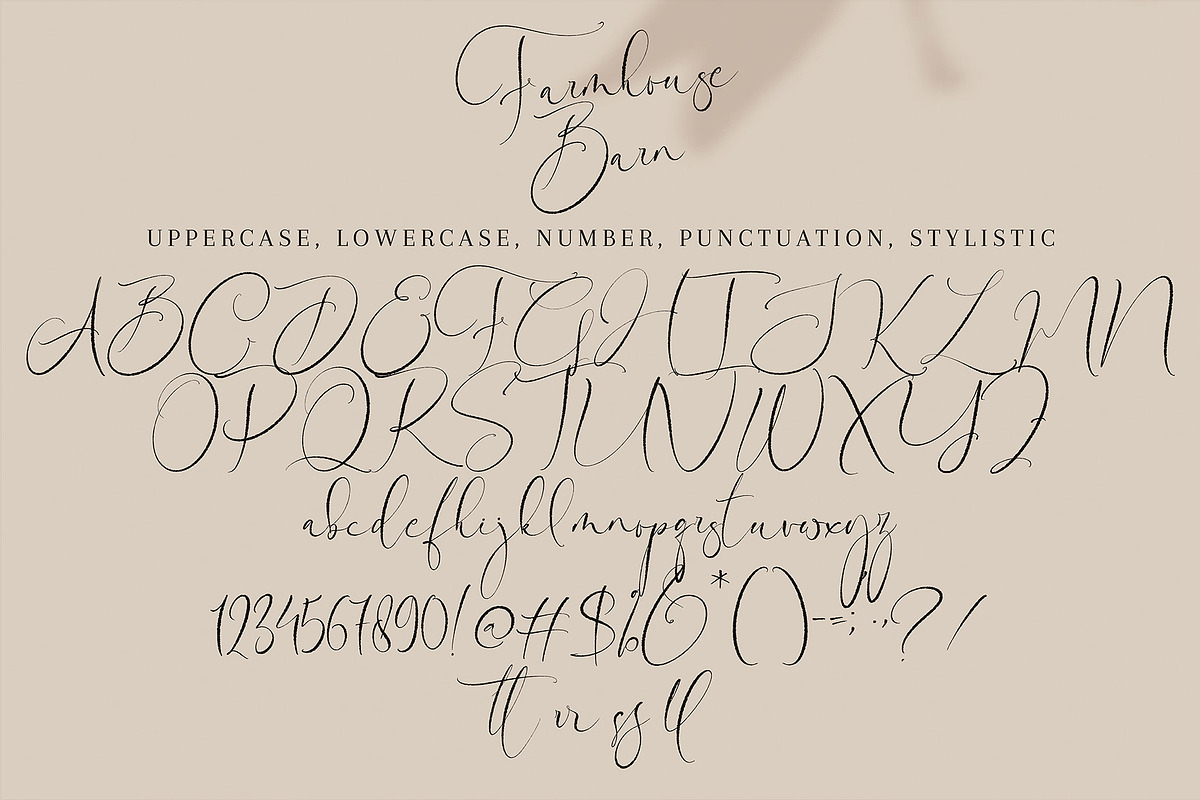 Farmhouse
Barn
UPPERCASE, LOWERCASE, NUMBER, PUNCTUATION, STYLISTIC
ABCDEFGHIJKLMN
OPQRSTUVWXYZ
abcdefhijklmnopqrstuvwxyz
1234567890!@#$%&*()--=;:.,?/
tt rr ss ll